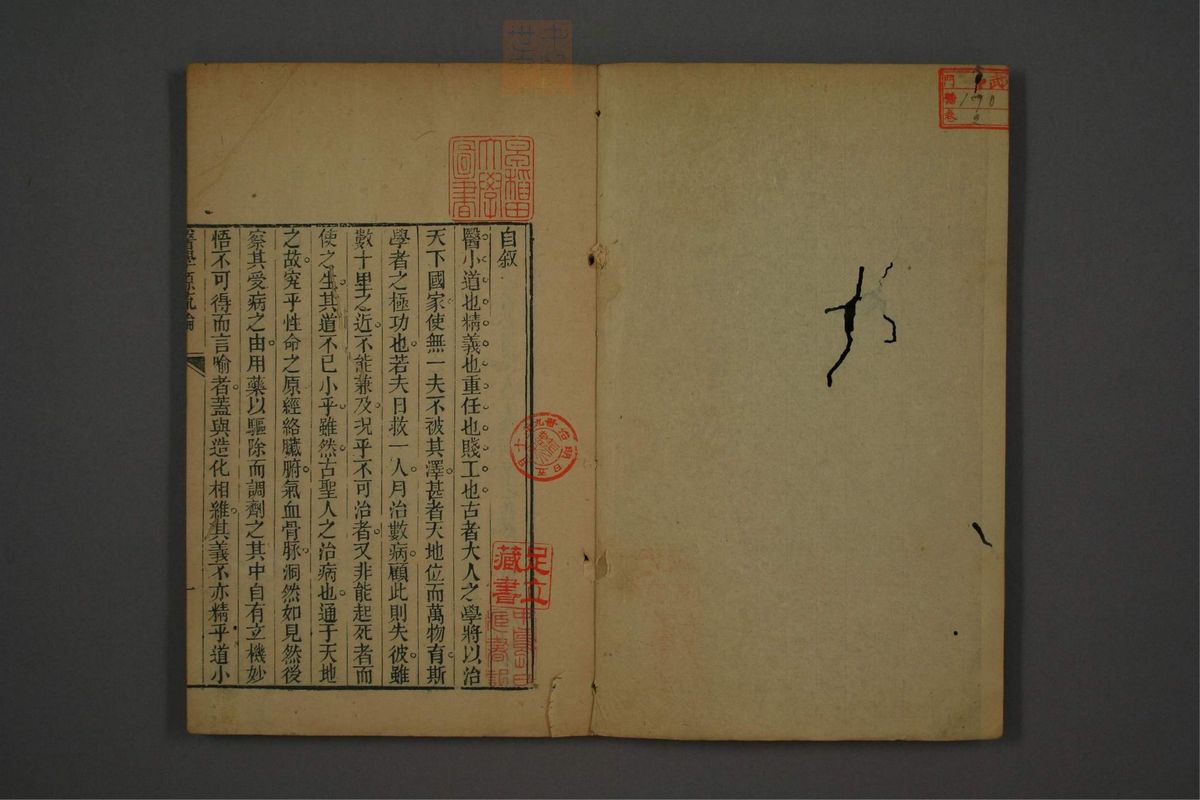 自叙
醫小道也精義也重任也賤工也古者大人之學將以治
天下國家使無一夫不被其澤甚者天地位而萬物育斯
學者之極功也若夫日救一人月治數病顧此則失彼雖
數十里之近不能兼及况乎不可治者又非能起死者而
使之生其道不已小乎雖然古聖人之治病也通于天地
之故究乎性命之原經絡臟腑氣血骨脉洞然如見然後
察其受病之由用藥以驅除而調劑之其中自有立機妙
悟不可得而言喻者蓋與造化相維其義不亦精乎道小
醫學源流論
一
早稻田大學圖書
足立藏書
門
號
卷
190